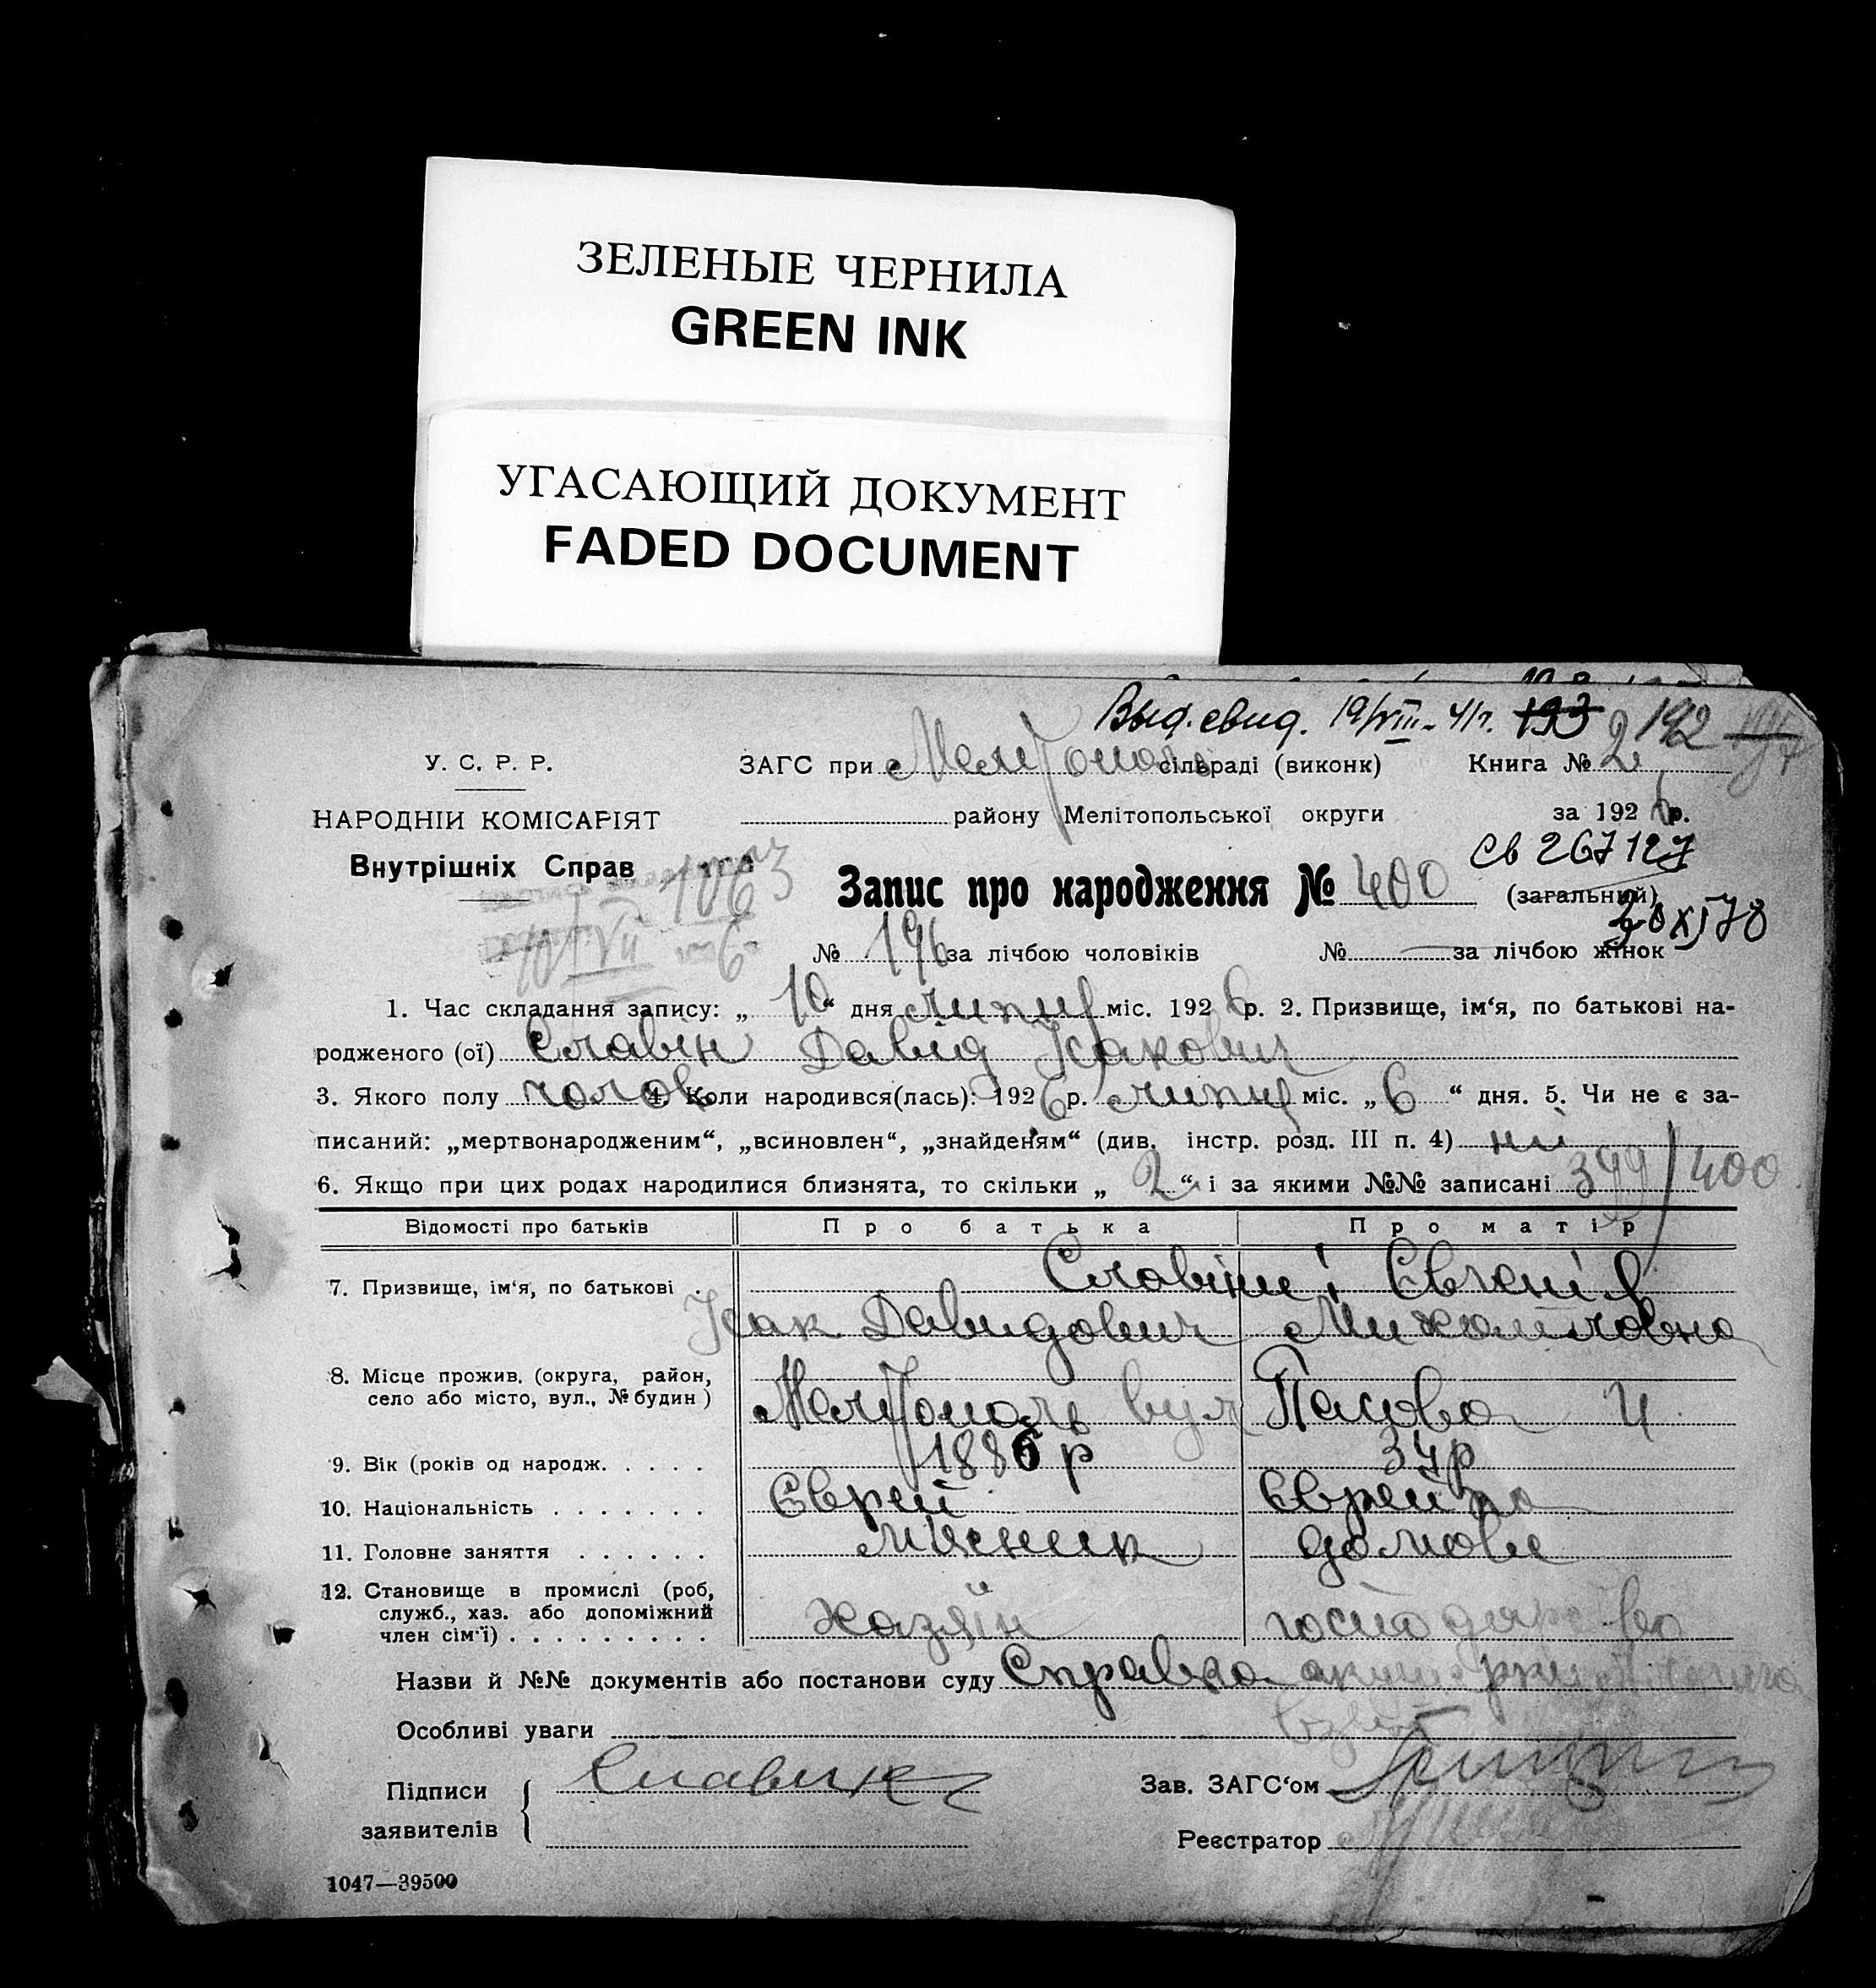 ЗЕЛЕНЫЕ ЧЕРНИЛА
GREEN INK
УГАСАЮЩИЙ ДОКУМЕНТ
FADED DOCUMENT
Выд. свид. 19/VIII-41г. 193 2 192
У. С. Р. Р.
ЗАГС при Мелітополь сільраді (виконк) Книга № 2
НАРОДНІЙ КОМІСАРІЯТ
району Мелітопольської округи за 1926 р.
Внутрішніх Справ
1063
св 267127
Запис про народження № 400 (загальний)
10/VII 6
20 XI 78
№ 196 за лічбою чоловіків № — за лічбою жінок
1. Час складання запису: „ 10 “ дня липця міс. 1926 р. 2. Призвище, ім‘я, по батькові на-
родженого (ої) Славін Давід Ісакович
3. Якого полу чолов 4. Коли народився(лась): 1926 р. липця міс. „ 6 “ дня. 5. Чи не є за-
писаний: „мертвонародженим“, „всиновлен“, „знайденям“ (див. інстр. розд. III п. 4) ні
6. Якщо при цих родах народилися близнята, то скільки „ 2 “ і за якими №№ записані 399/400
Відомості про батьків Про батька Про матір
7. Призвище, ім‘я, по батькові . Славіни і Євгенія
Ісак Давидович Михайловна
8. Місце прожив. (округа, район,
село або місто, вул., № будин) Мелітополь вул 4
9. Вік (років од народж. . . . . 1886 р 34 р
10. Національність . . . . . . . Єврей Єврейка
11. Головне заняття . . . . . . мясник домове
12. Становище в промислі (роб,
служб., хаз. або допоміжний
член сім‘ї) . . . . . . . . . хазяїн господарство
Назви й №№ документів або постанови суду Справка акушерки
Особливі уваги
Підписи
заявителів
Славин
Зав. ЗАГС‘ом
Реєстратор
1047—39500